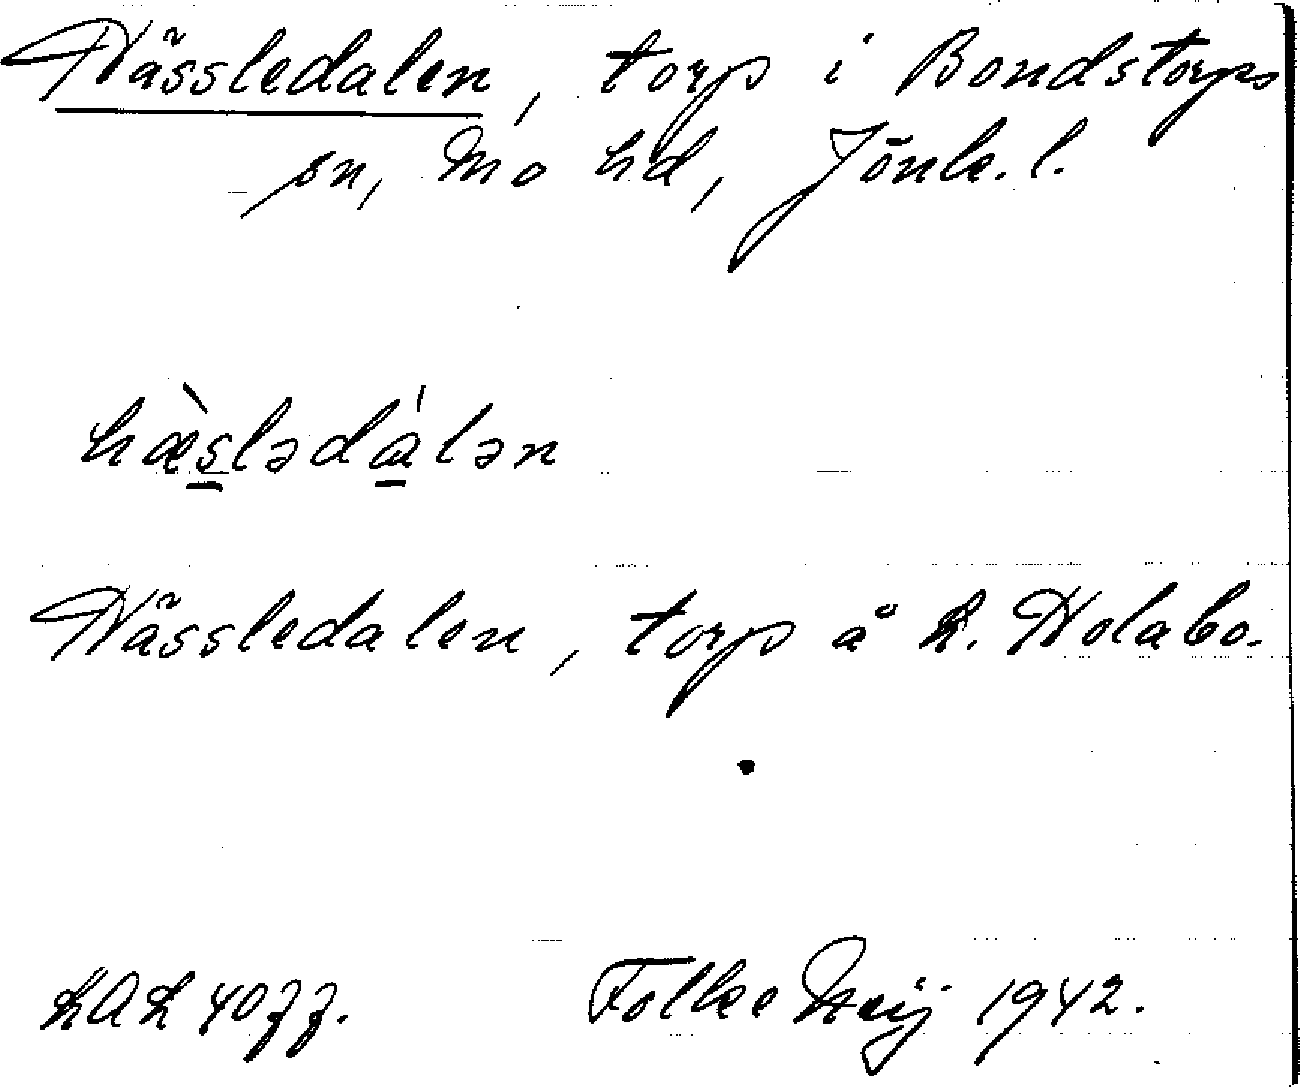 Hässledalen, torp i Bondstorps
sn, Mo hd, Jönk. l.
hæ̀sləda̍lən
Hässledalen, torp å L. Holabo.
Folke Meij 1942.